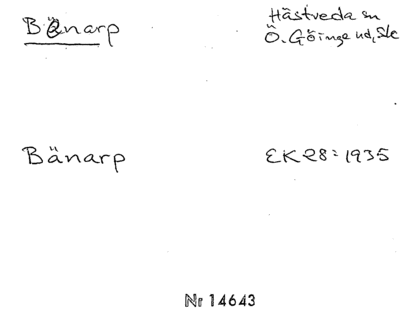 Bänarp
Hästveda sn
Ö. Göinge hd, Sk
Bänarp
EK 28: 1935
Nr 14643